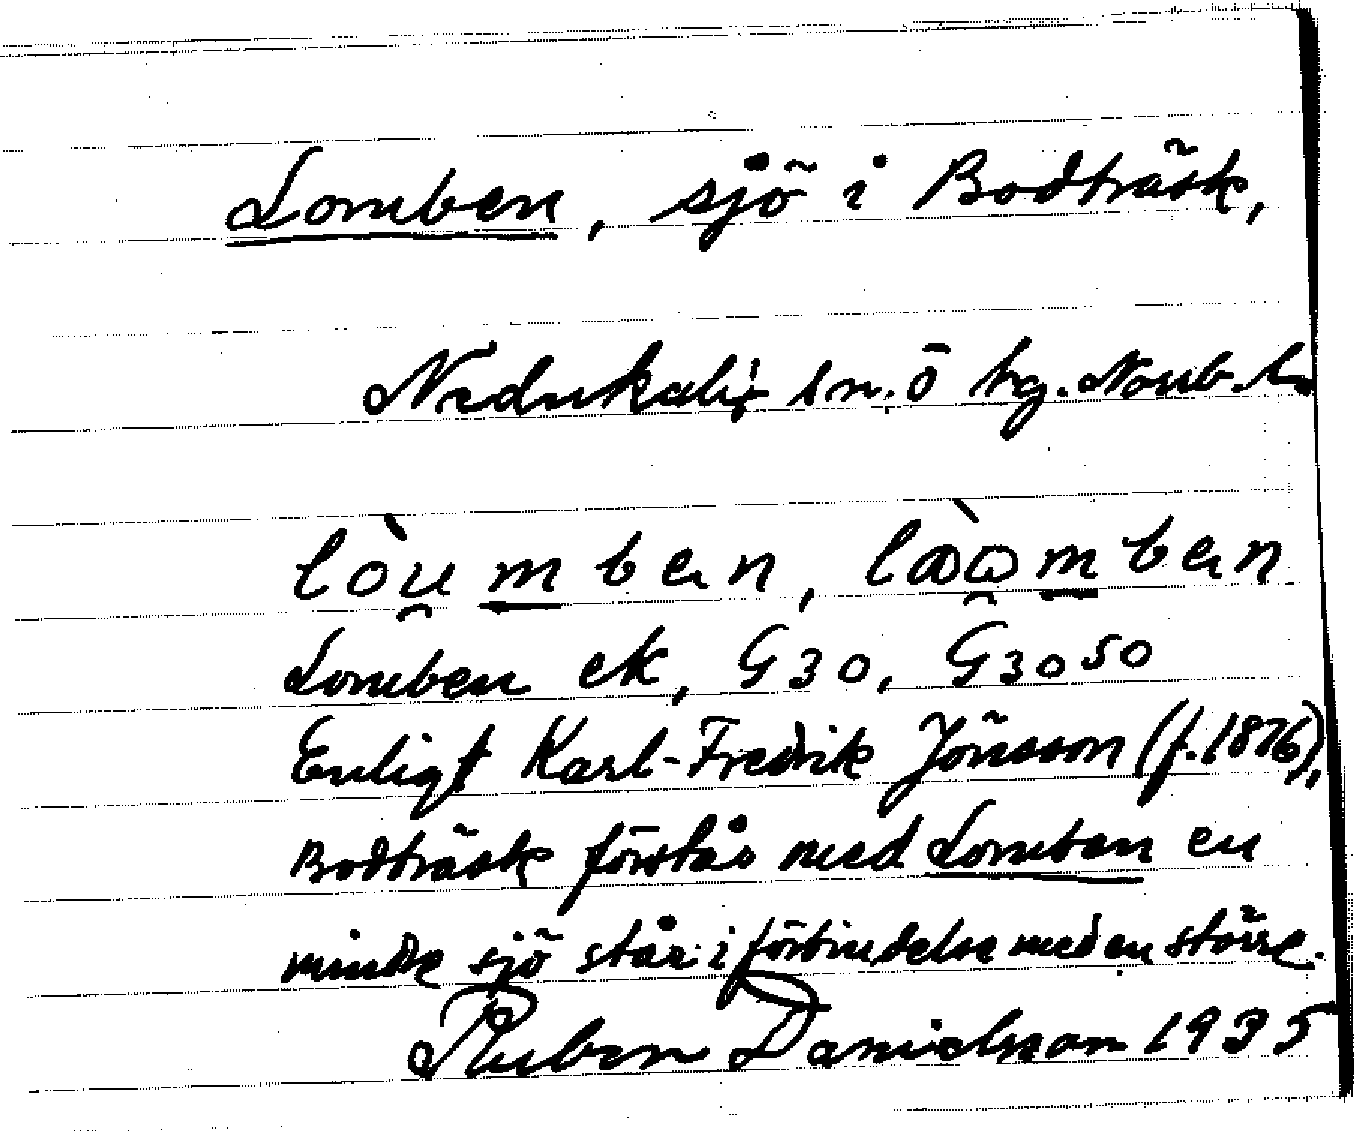 Lomben, sjö i Bodträsk,
Nederkalix sn. Ö tg. Norrb. L.
lòu̯m̲ben, lꝏ̀ɷ̯m̲ben
Lomben ek, G30, G3050
Enligt Karl-Fredrik Jönsson (f. 1876),
Bodträsk förstås med Lomben en
mindre sjö står i förbindelse med en större.
Ruben Danielsson 1935